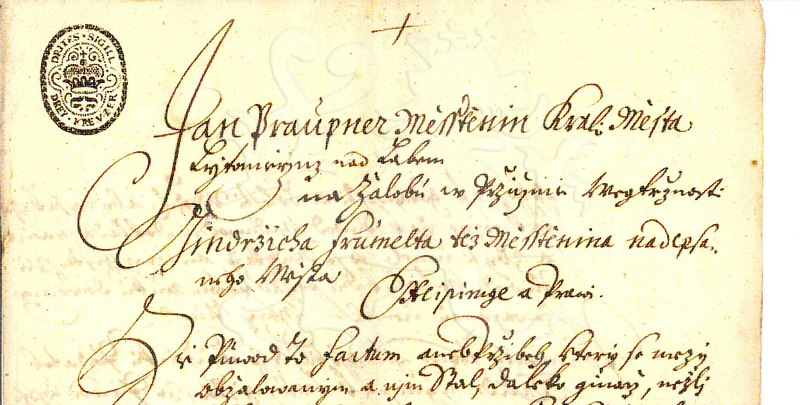 DRITES · SIGILL
DREY · KREVZER
Jan Praupner Měsstěnin Kral. Města
Lytomirzycz nad Labem
na Žalobu w Przicžinie Wegtržnosti
Jindržicha Frümelta též Měsstěnina nadepsa-
neho Města
Odeipiruge a Prawi.
Že Půwod To Factum aneb Pržiběh, ktery se mezy
obžalowanym a njm Stal, daleko ginaǧ, nežlj